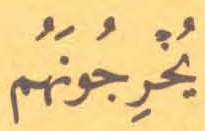 يُخْرِجُونَهُم